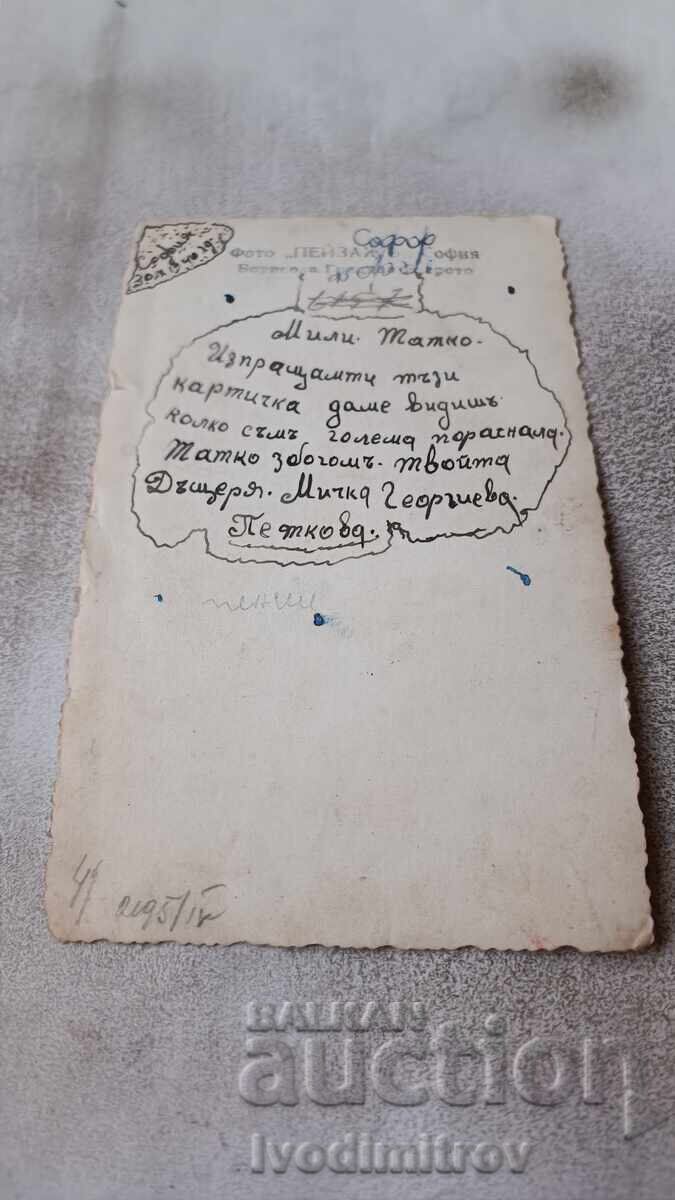 София
Софор
Фото „ПЕЙЗАЖ" София
Мили. Татко.
Изпращамти тъзи
картичка даме видишъ
колко съмъ голема порасналa.
Татко збогомъ. твойта
Дъщеря. Мичка Георгиева.
Петкова.
пенчи
4/
BALKAN
auction
Ivodimitrov